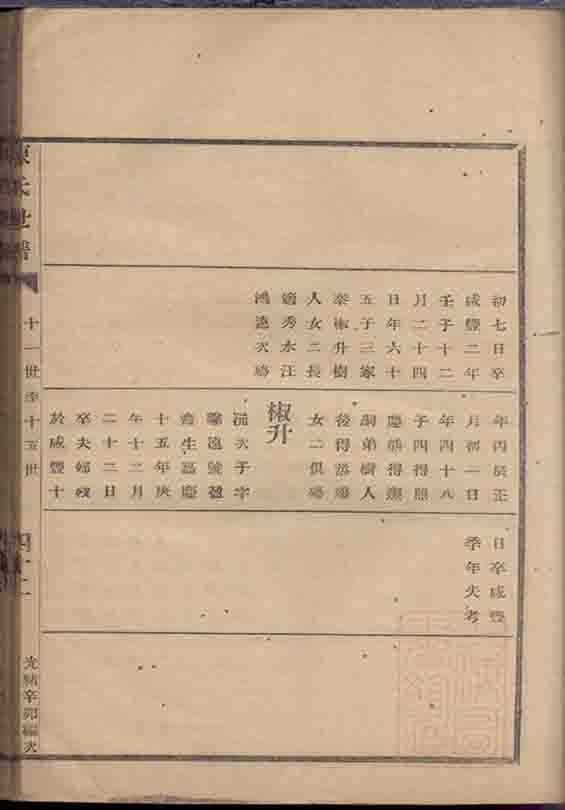 初七日卒
咸豐二年
壬子十二
月二十四
日年六十
五子三家
泰椒升樹
人女二長
適秀水汪
鴻逵次殤
年丙辰正
月初一日
年四十八
子四得照
慶得
嗣弟樹人
後得殤
女二俱殤
椒升
次子字
遠號盈
生嘉慶
十五年庚
午十二月
二十二日
卒夫婦歿
於咸豐十
日卒咸豐
季年失考
陳氏世譜
十一世至十五世
光緒辛卯編次